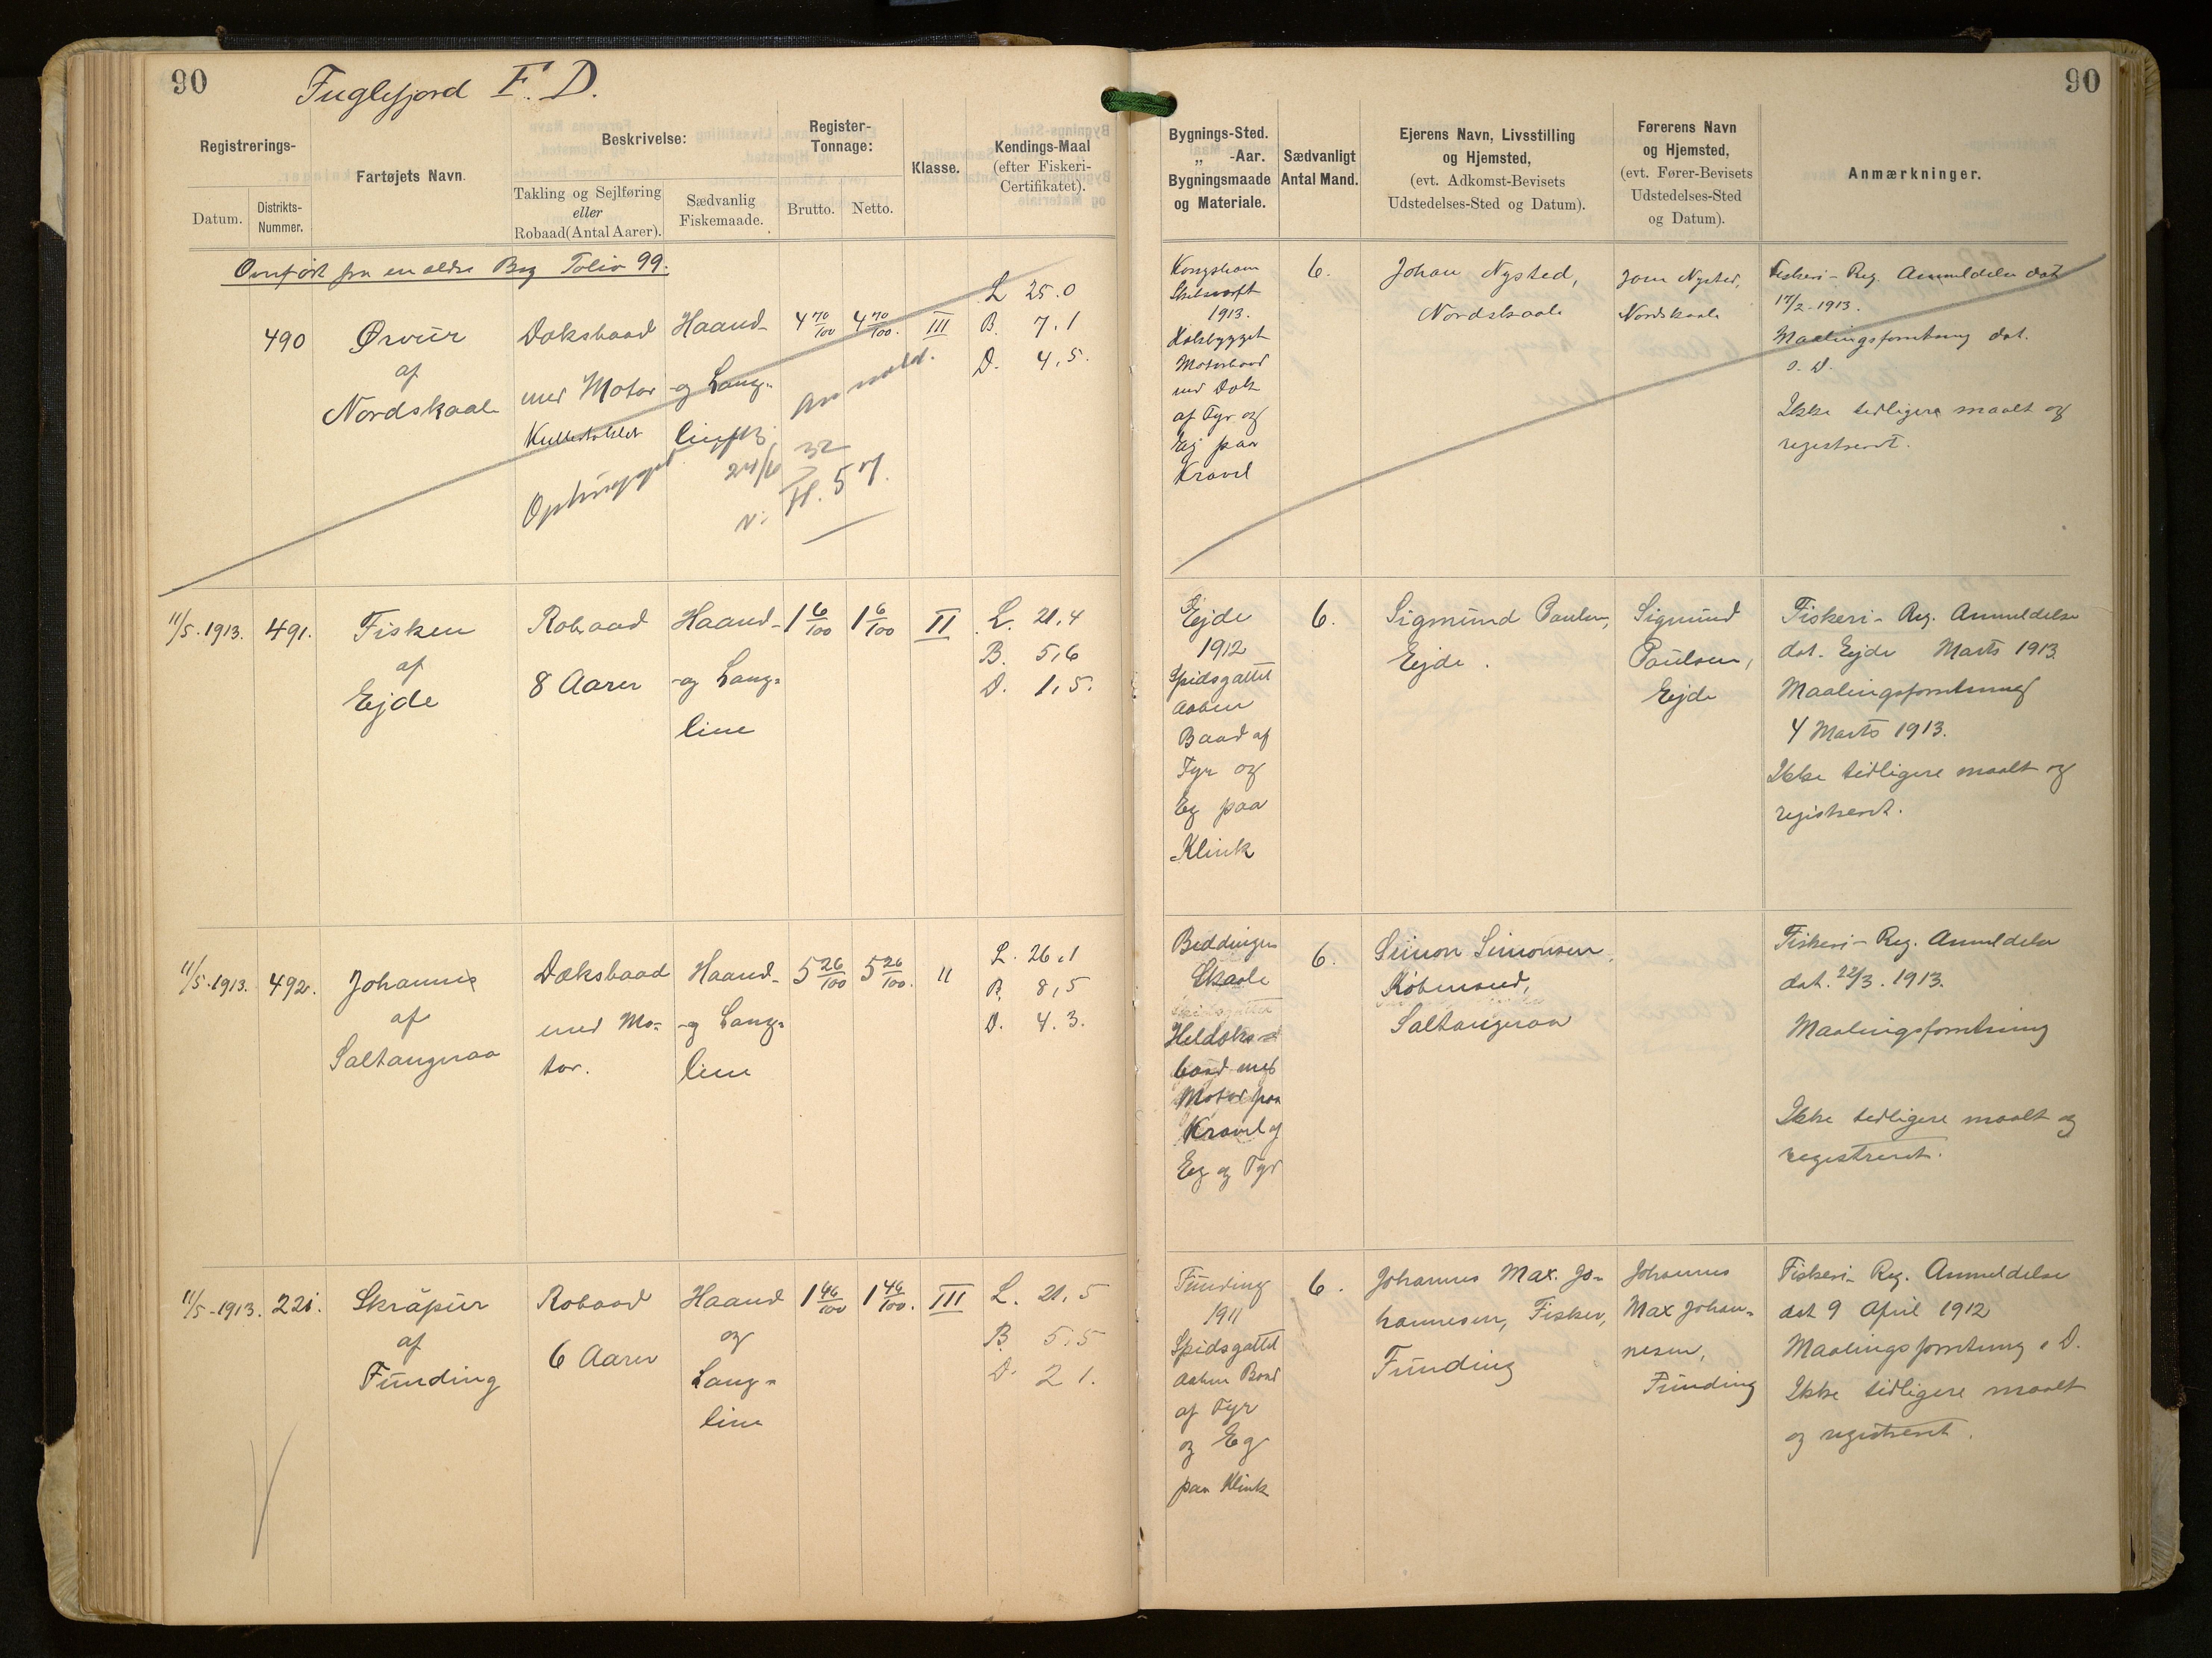 90
Fuglefjord F. D.
Registrerings-
Datum.
Distrikts-
Nummer.
Fartøjets Navn.
Beskrivelse:
Takling og Sejlføring
eller
Robaad (Antal Aarer).
Sædvanlig
Fiskemaade.
Register-
Tonnage:
Brutto.
Netto.
Klasse.
Kendings-Maal
(efter Fiskeri-
Certifikatet).
90
Bygnings-Sted.
„ -Aar.
Bygningsmaade
og Materiale.
Sædvanligt
Antal Mand.
Ejerens Navn, Livsstilling
og Hjemsted,
(evt. Adkomst-Bevisets
Udstedelses-Sted og Datum).
Førerens Navn
og Hjemsted,
(evt. Fører-Bevisets
Udstedelses-Sted
og Datum).
Anmærkninger.
Overført fra en ældre Bog Folio 99.
490
Ørvur
af
Nordskaale
Dæksbaad
med Motor
Kuttertaklet
Haand-
og Lang-
line
4 70/100
4 70/100.
III
L 25.0
B. 7.1
D. 4,5.
Ophugget
24/6 32
H. 57.
Kongshavn
1913.
Kølbygget
Motorbaad
med Dæk
af Fyr og
Eg paa
Kravel
6.
Johan Nysted,
Nordskaale
Joen Nysted,
Nordskaale
Fiskeri-Reg. Anmeldelse dat
17/2-1913.
Maalingsforretning dat.
s. D.
Ikke tidligere maalt og
registreret.
11/5.1913.
491.
Fisken
af
Ejde
Robaad
8 Aarer
Haand-
og Lang-
line
1 6/100
1 6/100
II
L. 21,4
B. 5,6
D. 1,5.
Ejde
1912
Spidsgattet
aaben
Baad af
Fyr og
Eg paa
Klink
6.
Sigmund Poulsen,
Ejde.
Sigmund
Poulsen,
Ejde
Fiskeri-Reg. Anmeldelse
dat. Ejde Marts 1913
Maalingsforretning
4 Marts 1913.
Ikke tidligere maalt og
registreret.
11/5.1913.
492.
Johannes
af
Saltangeraa
Dæksbaad
med Mo-
tor.
Haand-
og Lang-
line
5 26/100
5 26/100.
II
L. 26,1
B. 8,5
D. 4.3.
Skaale
Heldæks-
baad med
Motor paa
Kravel af
Eg og Fyr
6.
Simon Simonsen,
Købmand,
Saltangeraa
Fiskeri-Reg. Anmeldelse
dat. 22/3. 1913.
Maalingsforretning
Ikke tidligere maalt og
registreret.
11/5-1913.
221.
Skrápur
af
Funding
Robaad
6 Aarer
Haand
og
Lang-
line
1 46/100
1 46/100.
III
L. 21,5
B. 5,5
D. 2 1.
Funding
1911
Spidsgattet
aaben Baad
af Fyr
og Eg
paa Klink
6.
Johannes Max. Jo-
hannesen, Fisker,
Funding
Johannes
Max Johan-
nesen,
Funding
Fiskeri-Reg. Anmeldelse
dat 9 April 1912
Maalingsforretning s D.
Ikke tidligere maalt
og registreret.